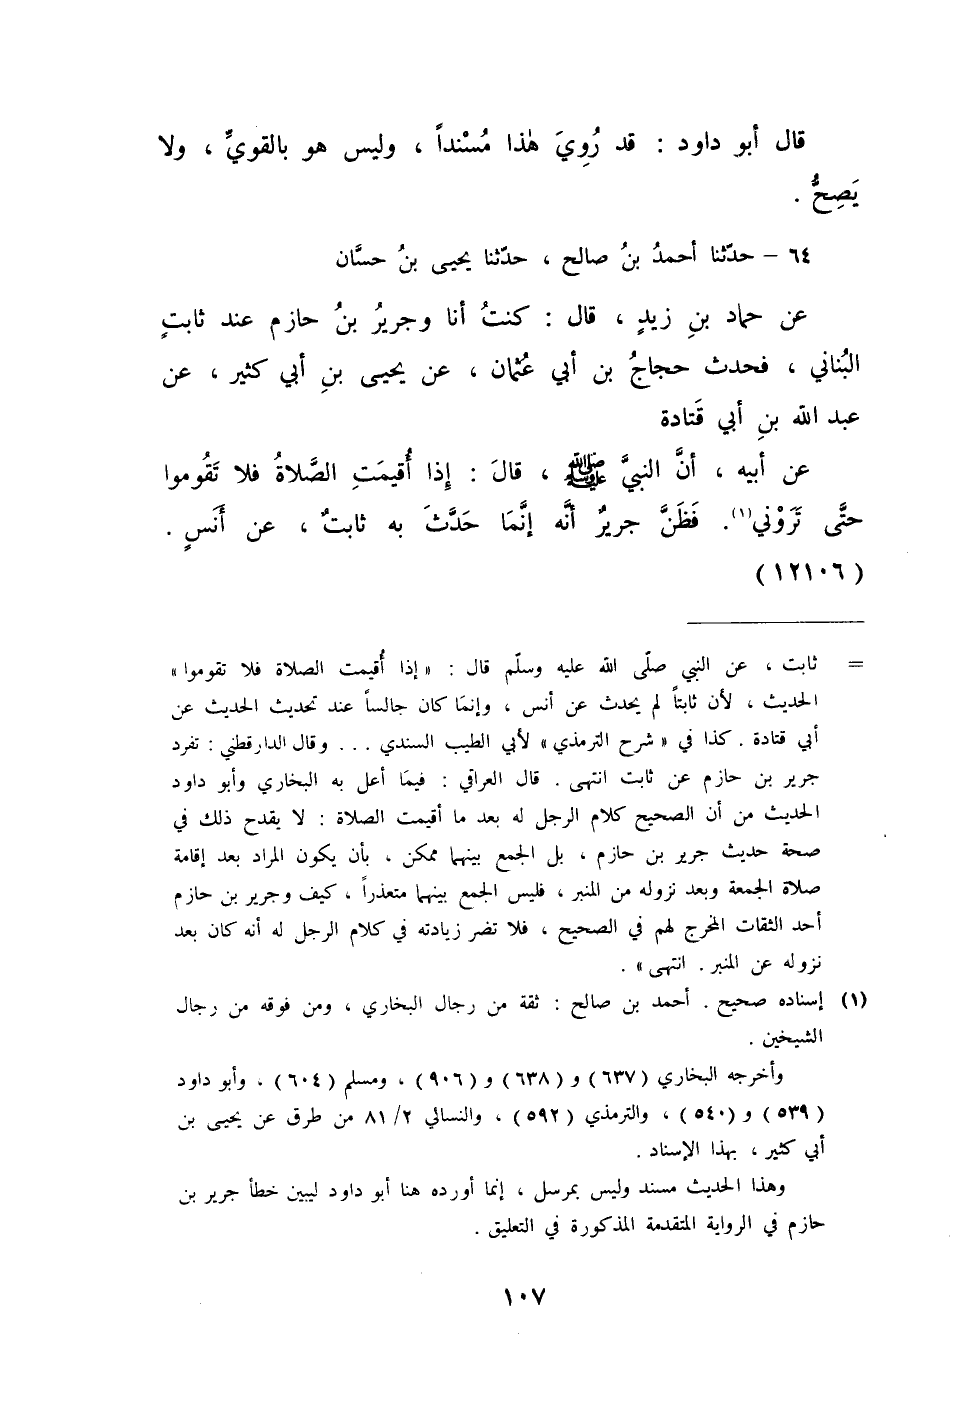 قال أبو داود : قد رُوِيَ هٰذا مُسْنداً ، وليس هو بالقويِّ ، ولا
يَصِحُّ .
٦٤ - حدّثنا أحمدُ بنُ صالح ، حدّثنا يحيى بنُ حسَّان
عن حماد بنِ زيدٍ ، قال : كنتُ أنا وجريرُ بنُ حازم عند ثابتٍ
البُناني ، فحدث حجاجُ بن أبي عُثمان ، عن يحيى بنِ أبي كثير ، عن
عبد الله بنِ أبي قَتادة
عن أبيه ، أنَّ النبيَّ ﷺ ، قالَ : إِذا أُقيمَتِ الصَّلاةُ فلا تَقُوموا
حتَّى تَرَوْني(١). فَظَنَّ جريرٌ أنَّه إنَّمَا حَدَّثَ به ثابتٌ ، عن أَنَسٍ .
(١٢١٠٦)
= ثابت ، عن النبي صلّى الله عليه وسلّم قال : « إذا أُقيمت الصلاة فلا تقوموا »
الحديث ، لأن ثابتاً لم يحدث عن أنس ، وإنما كان جالساً عند تحديث الحديث عن
أبي قتادة . كذا في « شرح الترمذي » لأبي الطيب السندي ... وقال الدارقطني : تفرد
جرير بن حازم عن ثابت انتهى . قال العراقي : فيما أعل به البخاري وأبو داود
الحديث من أن الصحيح كلام الرجل له بعد ما أقيمت الصلاة : لا يقدح ذلك في
صحة حديث جرير بن حازم ، بل الجمع بينهما ممكن ، بأن يكون المراد بعد إقامة
صلاة الجمعة وبعد نزوله من المنبر ، فليس الجمع بينهما متعذراً ، كيف وجرير بن حازم
أحد الثقات المخرج لهم في الصحيح ، فلا تضر زيادته في كلام الرجل له أنه كان بعد
نزوله عن المنبر . انتهى » .
(١) إسناده صحيح . أحمد بن صالح : ثقة من رجال البخاري ، ومن فوقه من رجال
الشيخين .
وأخرجه البخاري (٦٣٧) و (٦٣٨) و (٩٠٦) ، ومسلم (٦٠٤) ، وأبو داود
(٥٣٩) و (٥٤٠) ، والترمذي (٥٩٢) ، والنسائي ٨١/٢ من طرق عن يحيى بن
أبي كثير ، بهذا الإسناد .
وهذا الحديث مسند وليس بمرسل ، إنما أورده هنا أبو داود ليبين خطأ جرير بن
حازم في الرواية المتقدمة المذكورة في التعليق .
١٠٧